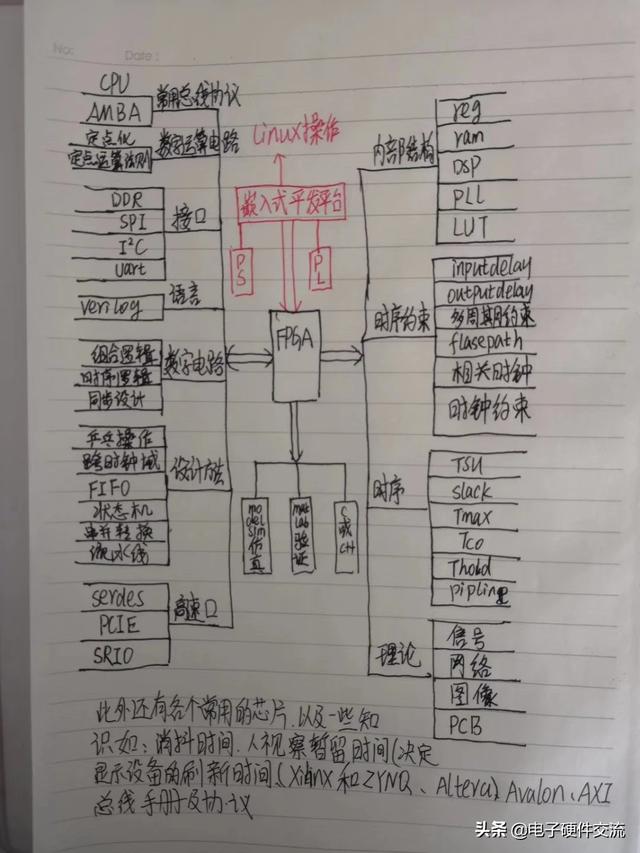 No:
Date:
CPU
AMBA
常用总线协议
定点化
定点运算法则
数字运算电路
DDR
SPI
I²C
uart
接口
verilog
语言
组合逻辑
时序逻辑
同步设计
数字电路
乒乓操作
跨时钟域
FIFO
状态机
串并转换
流水线
设计方法
serdes
PCIE
SRIO
高速口
Linux操作
嵌入式开发平台
PS
PL
FPGA
modelsim仿真
matlab验证
C或C++
内部结构
reg
ram
DSP
PLL
LUT
时序约束
inputdelay
outputdelay
多周期约束
flasepath
相关时钟
时钟约束
时序
TSU
slack
Tmax
Tco
Thold
理论
信号
网络
图像
PCB
此外还有各个常用的芯片.以及一些知
识如:消抖时间.人视察暂留时间(决定
显示设备的刷新时间)、(Xilinx和ZYNQ、Altera)、Avalon、AXI
总线手册及协议
头条@电子硬件交流